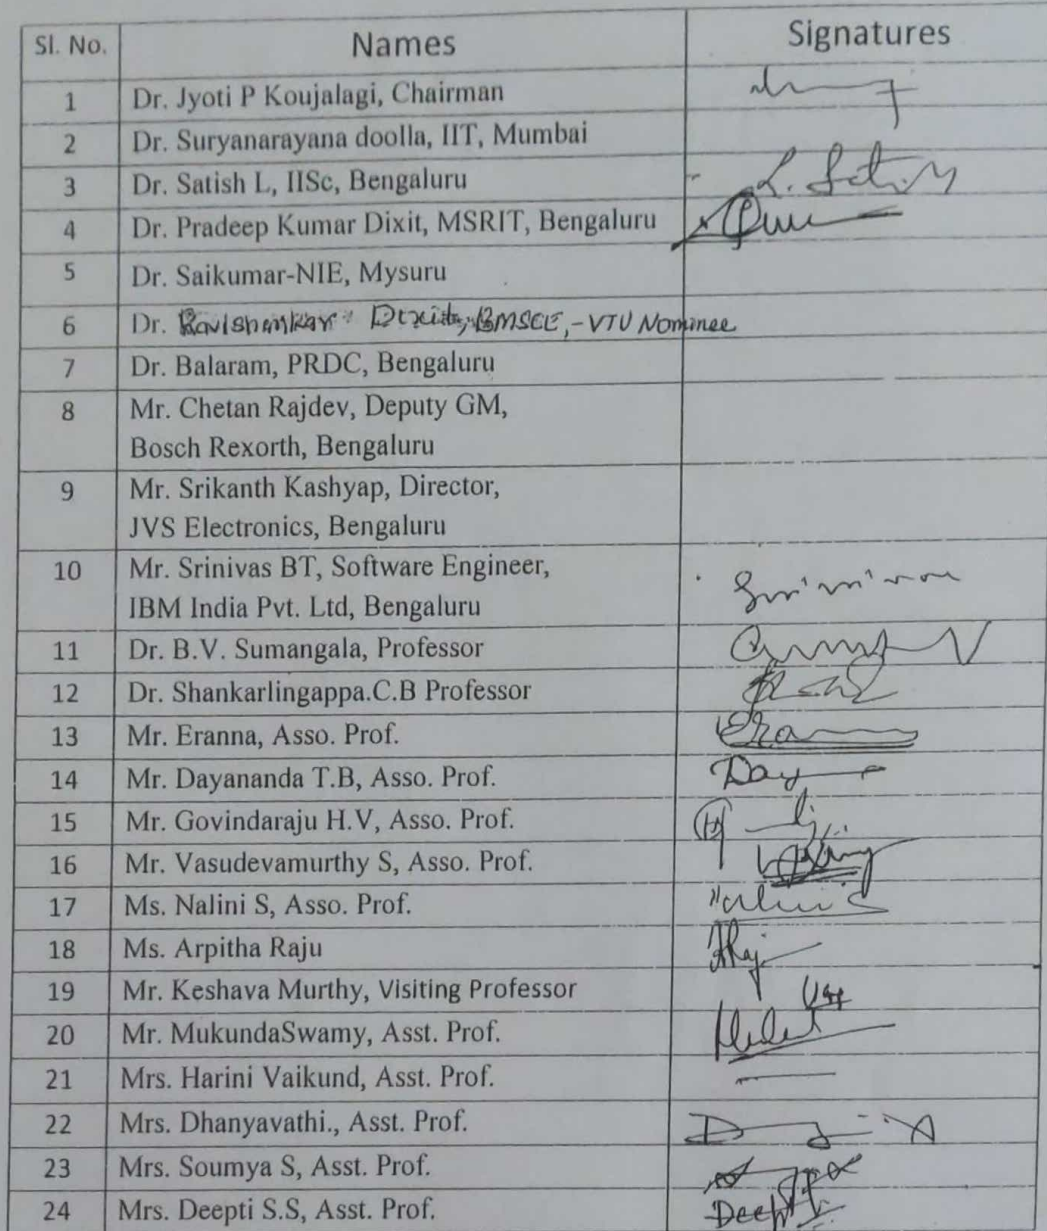 Sl. No. Names Signatures
1 Dr. Jyoti P Koujalagi, Chairman
2 Dr. Suryanarayana doolla, IIT, Mumbai
3 Dr. Satish L, IISc, Bengaluru
4 Dr. Pradeep Kumar Dixit, MSRIT, Bengaluru
5 Dr. Saikumar-NIE, Mysuru
6 Dr. Ravishankar Dixit, BMSCE, - VTU Nominee
7 Dr. Balaram, PRDC, Bengaluru
8 Mr. Chetan Rajdev, Deputy GM,
Bosch Rexorth, Bengaluru
9 Mr. Srikanth Kashyap, Director,
JVS Electronics, Bengaluru
10 Mr. Srinivas BT, Software Engineer,
IBM India Pvt. Ltd, Bengaluru
11 Dr. B.V. Sumangala, Professor
12 Dr. Shankarlingappa.C.B Professor
13 Mr. Eranna, Asso. Prof.
14 Mr. Dayananda T.B, Asso. Prof. Day
15 Mr. Govindaraju H.V, Asso. Prof.
16 Mr. Vasudevamurthy S, Asso. Prof.
17 Ms. Nalini S, Asso. Prof.
18 Ms. Arpitha Raju
19 Mr. Keshava Murthy, Visiting Professor
20 Mr. MukundaSwamy, Asst. Prof.
21 Mrs. Harini Vaikund, Asst. Prof.
22 Mrs. Dhanyavathi., Asst. Prof.
23 Mrs. Soumya S, Asst. Prof.
24 Mrs. Deepti S.S, Asst. Prof.